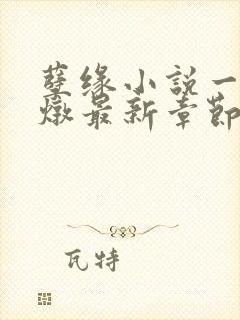 孽缘小说一
燉最新章節
瓦特